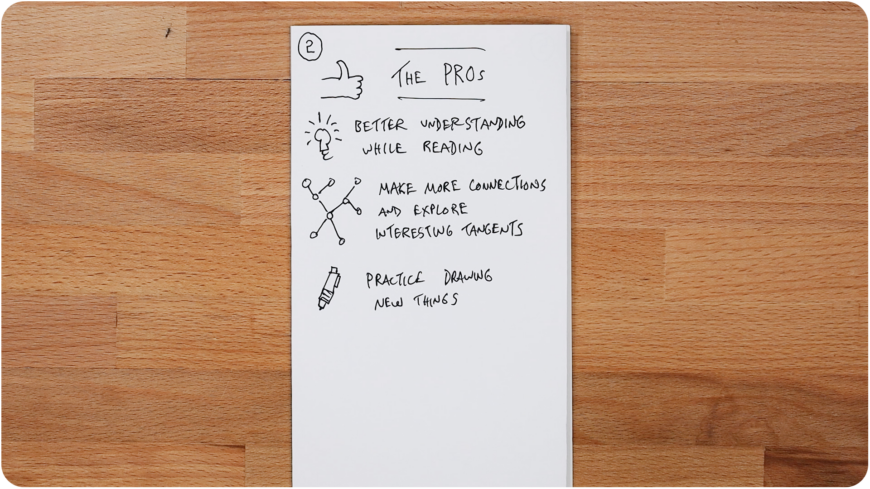 2
THE PROS
BETTER UNDERSTANDING
WHILE READING
MAKE MORE CONNECTIONS
AND EXPLORE
INTERESTING TANGENTS
PRACTICE DRAWING
NEW THINGS